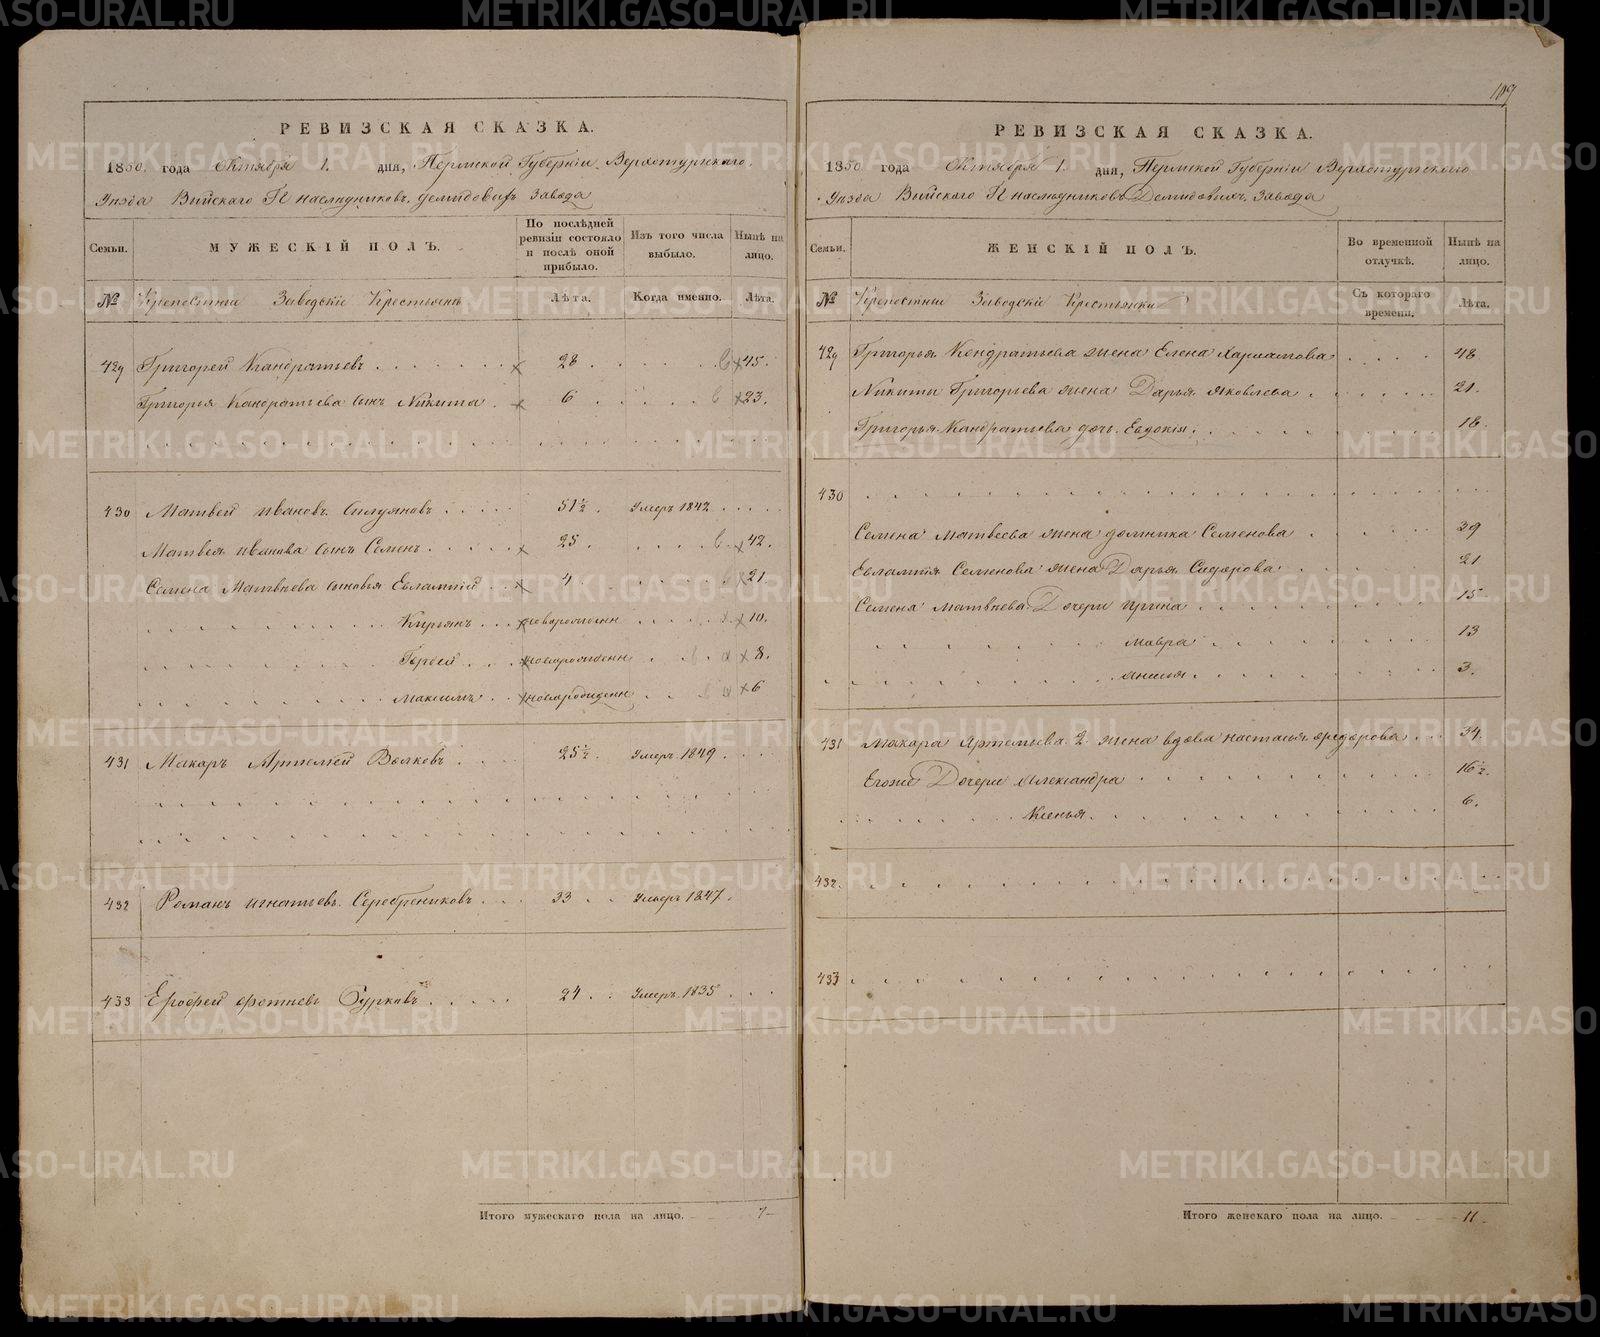 РЕВИЗСКАЯ СКАЗКА.
1850. года Октября 1. дня, Пермской Губернiи Верхотурскаго
Уѣзда Выйскаго Гг наслѣдниковъ Демидовыхъ Завода
Семьи. МУЖЕСКIЙ ПОЛЪ. По послѣдней ревизiи состояло и послѣ оной прибыло. Изъ того числа выбыло. Нынѣ на лицо.
№ Крепостныи Заводскiе Крестьянъ Лѣта. Когда именно. Лѣта.
429 Григорей Кандратьевъ 28 45.
Григорья Кандратьева сынъ Никита 6 23.
430 Матвей Ивановъ 51½. Умеръ 1842
Матвея Иванова сынъ Семенъ 25 42.
Семена Матвѣева сыновья Евлампiй 4 21
Кирьянъ новорожденн 10.
Гордей новорожденн 8.
Максимъ новорожденн 6
431 Макаръ Артемiей Волковъ 25½. Умеръ 1849
432 Романъ Игнатьевъ Серебрениковъ 33 Умеръ 1847.
433 Ерофей Фотеевъ Бурковъ 24 Умеръ 1835
Итого мужескаго пола на лицо. 7
109
РЕВИЗСКАЯ СКАЗКА.
1850 года Октября 1. дня, Пермской Губернiи Верхотурскаго
Уѣзда Выйскаго Гг наслѣдниковъ Демидовыхъ Завода
Семьи. ЖЕНСКIЙ ПОЛЪ. Во временной отлучкѣ. Нынѣ на лицо.
№ Крепостныи Заводскiе Крестьянки Съ котораго времени. Лѣта.
429 Григорья Кондратьева жена Елена 48
Никиты Григорьева жена Дарья Яковлева 21.
Григорья Кандратьева дочь Евдокiя 18.
430
Семена Матвеева жена Домника Семенова 39
Евлампiя Семенова жена Дарья Сидорова 21
Семена Матвѣева Дочери Ирина 15
Мавра 13
Анисья 3.
431 Макара Артемьева 2 жена вдова Настасья Федорова 34.
Егоже Дочери Александра 16½.
Ксенья 6.
432.
433
Итого женскаго пола на лицо. 11
METRIKI.GASO-URAL.RU